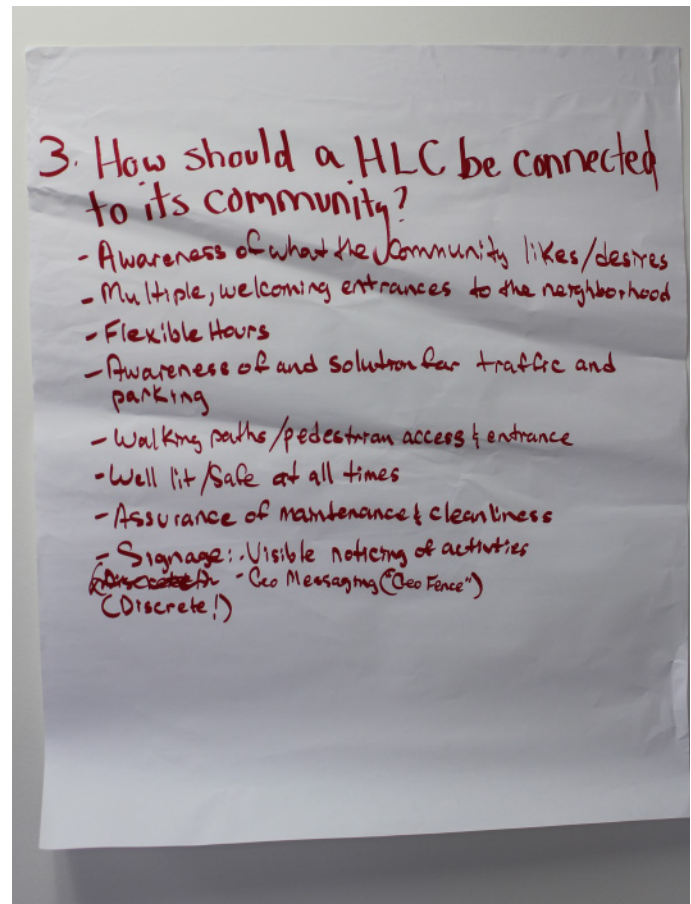 3. How should a HLC be connected
to its community?
- Awareness of what the Community likes/desires
- Multiple, welcoming entrances to the neighborhood
- Flexible Hours
- Awareness of and solution for traffic and
parking
- Walking paths/pedestrian access & entrance
- Well lit/Safe at all times
- Assurance of maintenance & cleanliness
- Signage: · Visible noticing of activities
- Geo Messaging ("Geo Fence")
(Discrete!)